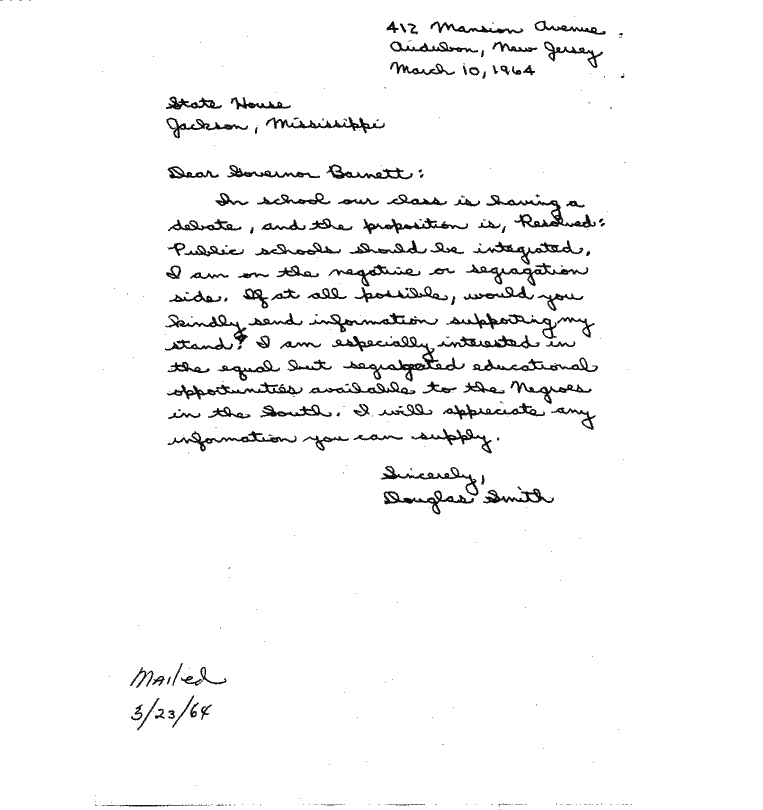 412 Mansion Avenue
Audubon, New Jersey
March 10, 1964
State House
Jackson, Mississippi
Dear Governor Barnett:
In school our class is having a
debate, and the proposition is, Resolved:
Public schools should be integrated.
I am on the negative or segragation
side. If at all possible, would you
kindly send information supporting my
stand? I am especially interested in
the equal but segragated educational
opportunities available to the Negroes
in the South. I will appreciate any
information you can supply.
Sincerely,
Douglas Smith
Mailed
3/23/64